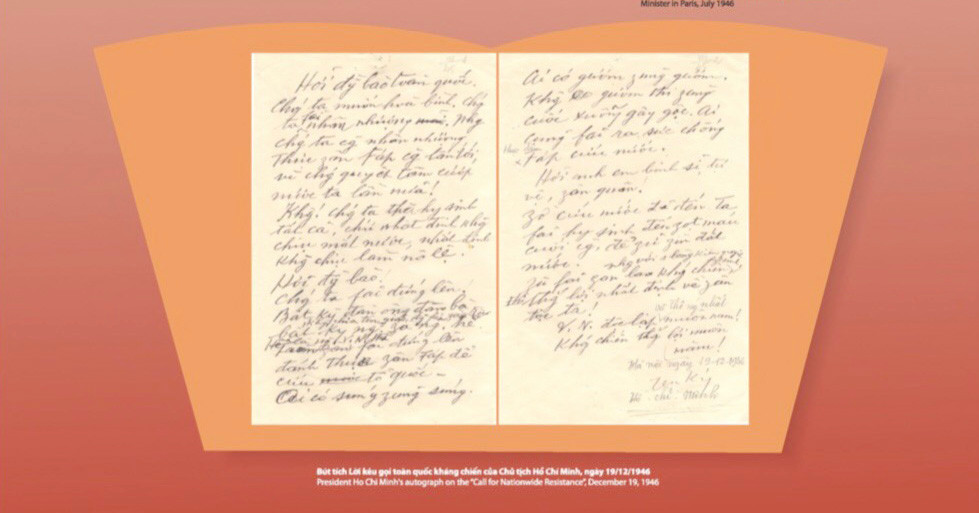 Minister in Paris, July 1946
Hỡi đg̀ bào toàn quốc.
Chǵ ta muốn hoà bình, chǵ
ta đã nhân nhượng. Nhg
chǵ ta cg̀ nhân nhượng
thực zân Fáp cg̀ lấn tới,
vì chǵ quyết tâm cướp
nước ta lần nữa!
Khg! Chǵ ta thà hy sinh
tất cả, chứ nhất định khg
chịu mất nước, nhất định
khg chịu làm nô lệ.
Hỡi đg̀ bào!
Chǵ ta fải đứng lên.
Bất kỳ đàn ông đàn bà
bất kỳ ng̀ zà ng̀ trẻ.
fải đứng lên
đánh thực zân Fáp để
cứu tổ quốc –
Ai có súng zùng súng.
Ai có gươm zùng gươm.
Khg có gươm thì zùng
cuốc xuổng gậy gộc. Ai
cũng fải ra sức chống
Fáp cứu nước.
Hỡi anh em binh sĩ tự
vệ, zân quân!
Zờ cứu nước đã đến. Ta
fải hy sinh đến zọt máu
cuối cg̀, để zữ zìn đất
nước.
Zù fải zan lao khg chiến
thg̀ lợi nhất định về zân
tộc ta!
V.N. độc lập và thống nhất muôn năm!
Khg chiến thg̀ lợi muôn
năm!
Hà nội ngày 19-12-1946
Hồ chí Minh
Bút tích Lời kêu gọi toàn quốc kháng chiến của Chủ tịch Hồ Chí Minh, ngày 19/12/1946
President Ho Chi Minh's autograph on the "Call for Nationwide Resistance", December 19, 1946